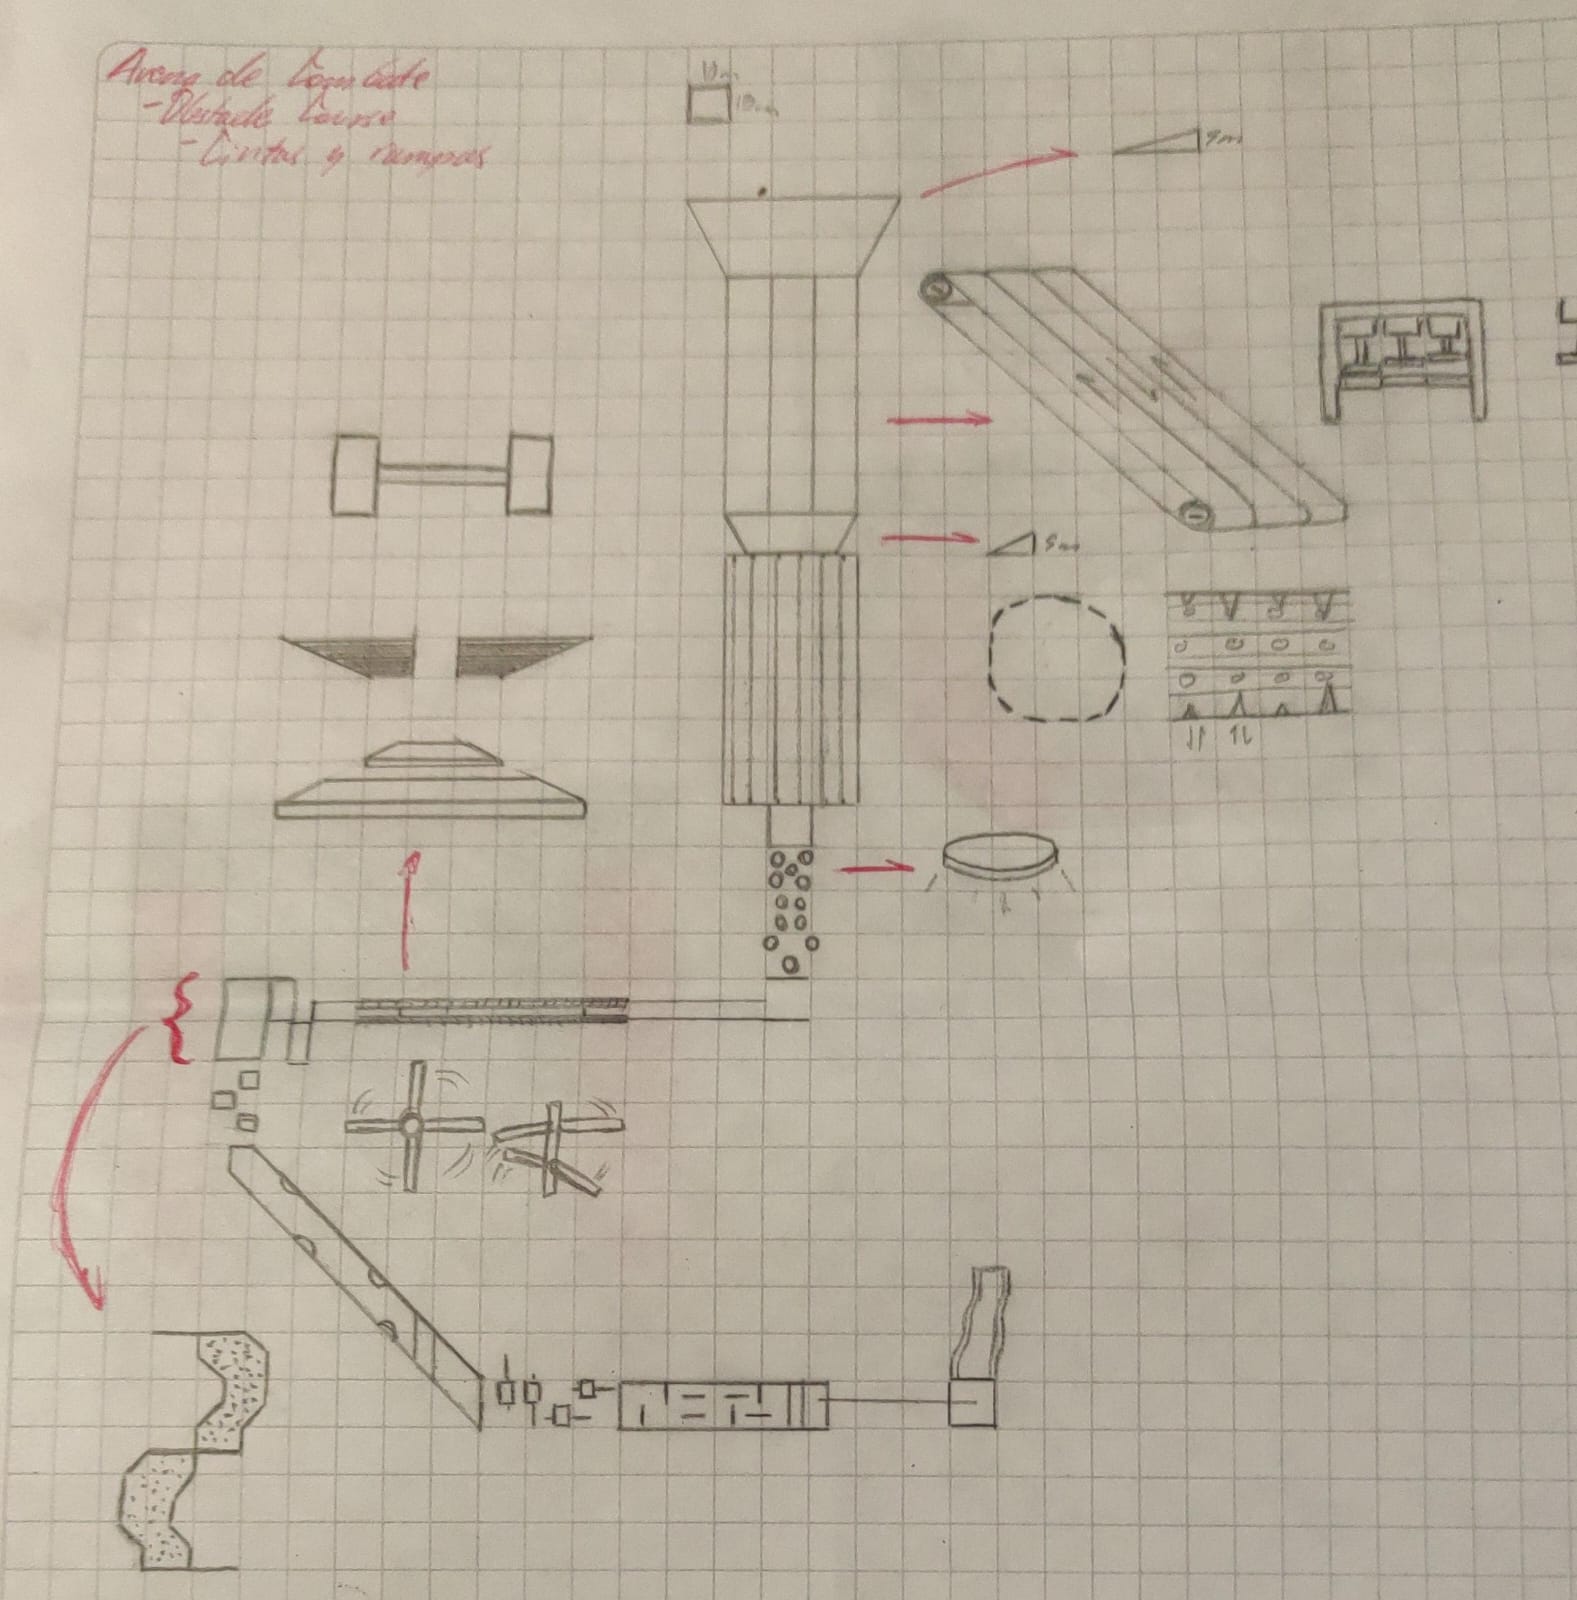 Arena de Combate
-Obstacle Course
-Cintas y rampas
10m
10m
5m